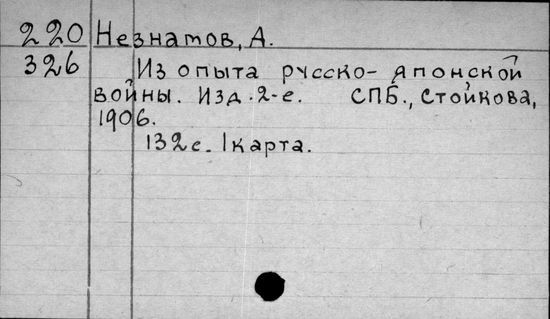 220 Незнамов, А.
326 Из опыта русско-японской
войны. Изд. 2-е. СПБ., Стойкова,
1906.
132с. 1 карта.